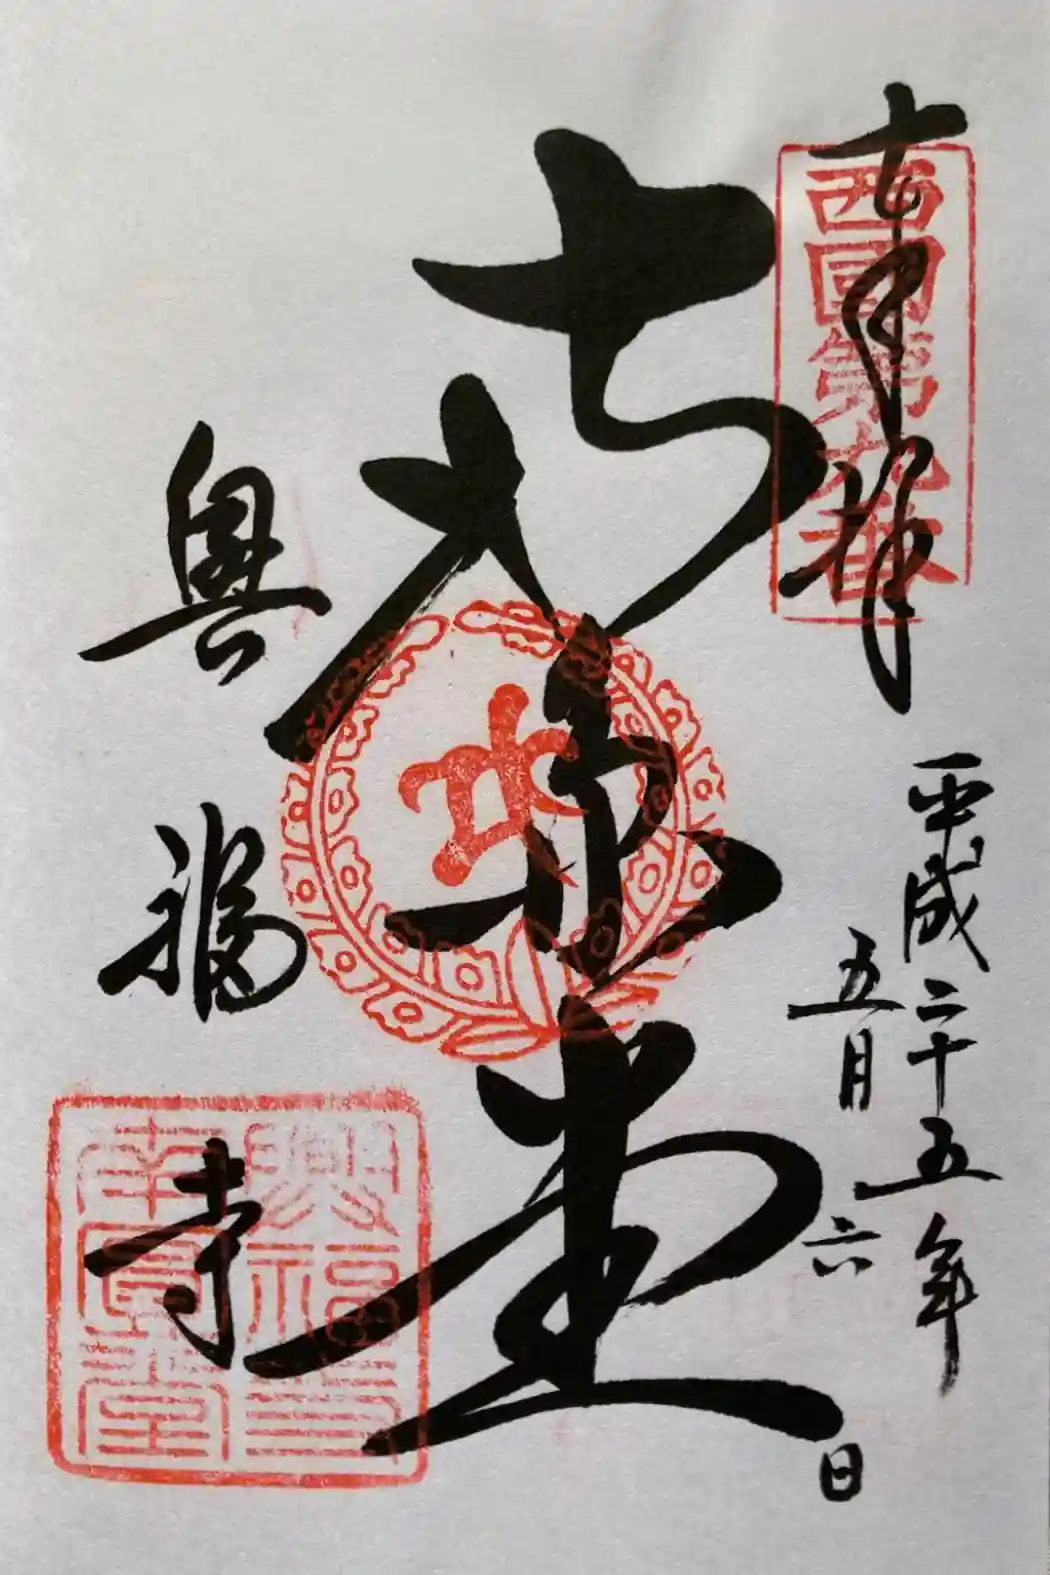 奉拝
西國第九番
平成二十五年
五月六日
堂
興福寺
興福寺
南圓堂